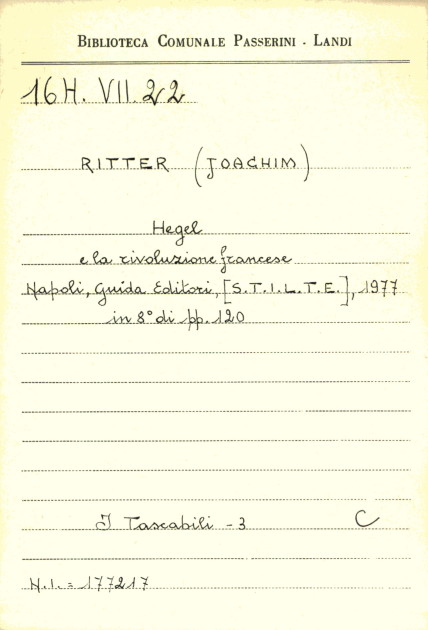 BIBLIOTECA COMUNALE PASSERINI - LANDI
16H. VII. 22
RITTER (JOACHIM)
Hegel
e la rivoluzione francese
Napoli, Guida Editori, [S.T.I.L.T.E.], 1977
in 8° di pp. 120
I Tascabili - 3 C
N.I. = 177217